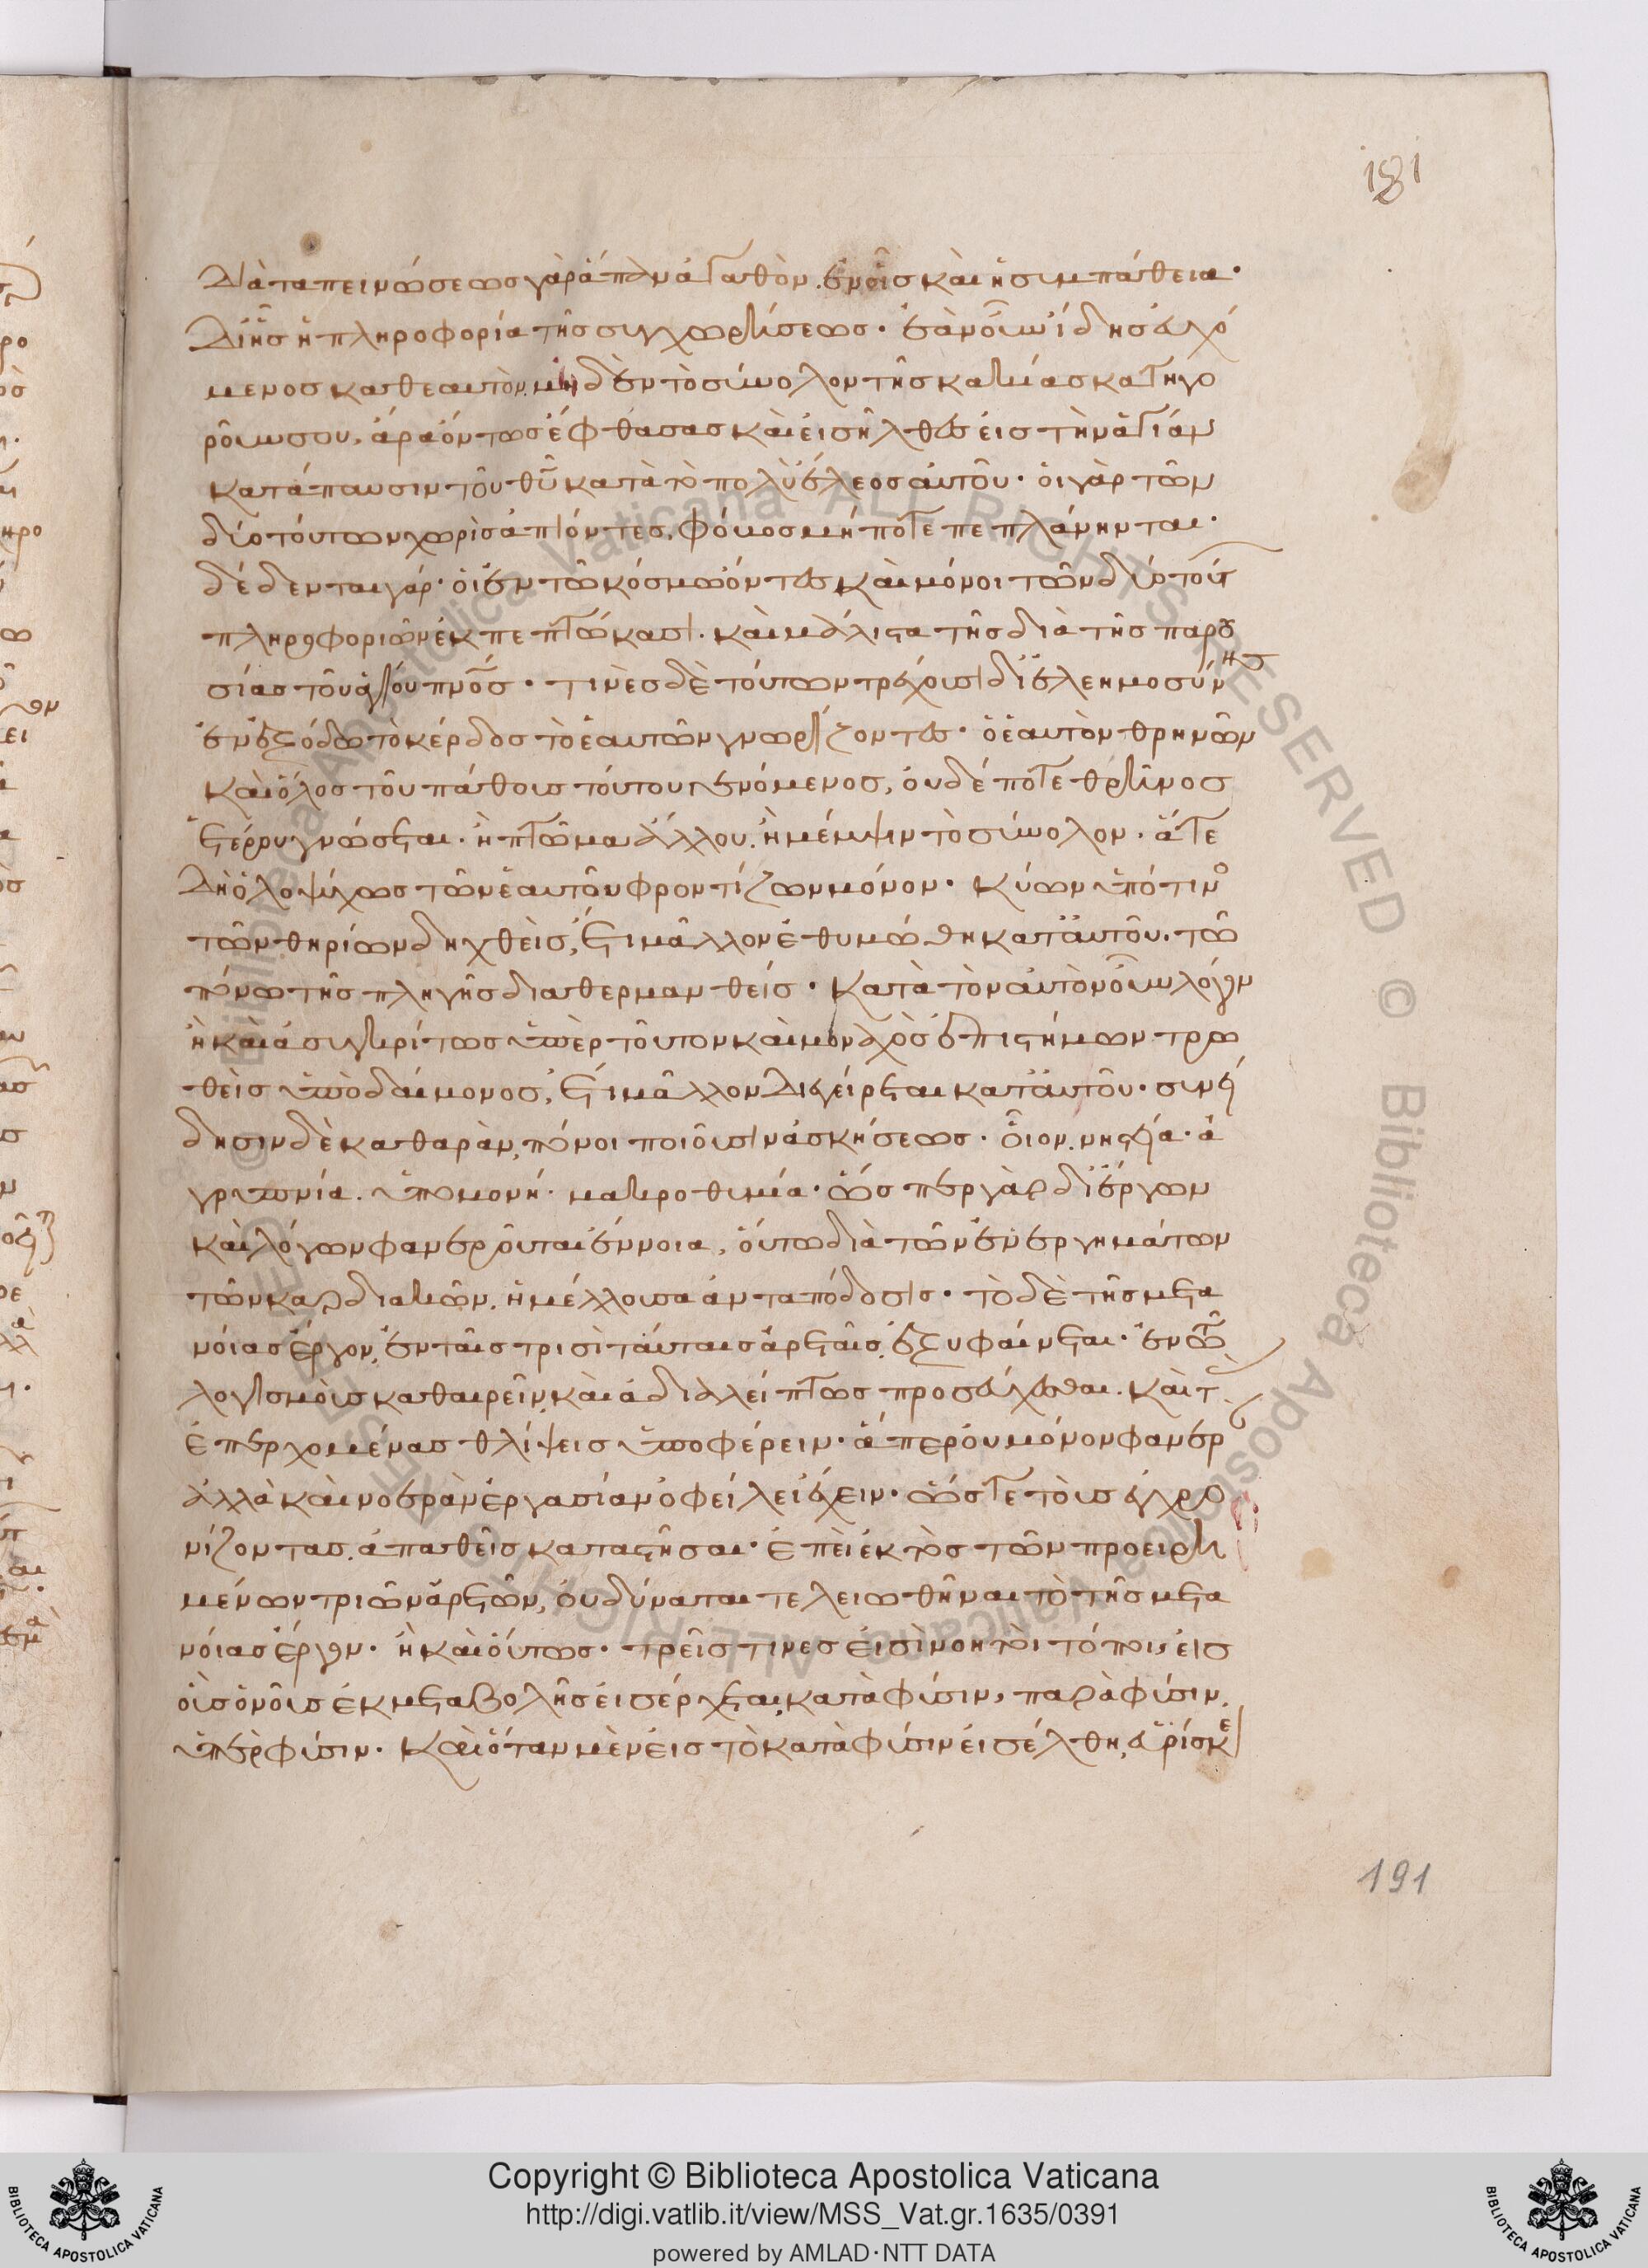 181
Διὰ ταπεινώσεως γὰρ ἅπαν ἀγαθὸν. ἐν οἷς καὶ ἡ συμπάθεια·
Δι ἧς ἡ πληροφορία τῆς συγχωρήσεως· ἐὰν οὖν ἴδης ἐρχό
μενος καθ ἑαυτὸν. μηδὲν τὸ σύνολον τῆς κακίας κατηγο
ροῦν σου, ἄρα ὄντως ἔφθασας καὶ εἰσῆλθες εἰς τὴν ἁγίαν
κατάπαυσιν τοῦ θῦ κατὰ τὸ πολὺ ἔλεος αὐτοῦ· οἱ γὰρ τῶν
δύο τούτων χωρὶς ἀπιόντες, φόβος μήποτε πεπλάνηνται·
δέδενται γάρ· οἱ ἐν τῶ κόσμω ὄντες καὶ μόνοι τῶν δύο τούτ
πληροφοριῶν ἐκπεπτώκασι. καὶ μάλιστα τῆς διὰ τῆς παρου
σίας τοῦ ἁγίου πνς· τινὲς δὲ τούτων τρέχουσι δι ἐλεημοσύνης
ἐν ἐξόδω τὸ κέρδος τὸ ἑαυτῶν γνωρίζοντες· ὁ ἑαυτὸν θρηνῶν
καὶ ὅλος τοῦ πάθους τούτου γενόμενος, οὐδέποτε θρῆνος
ἑτέρου γνώσεται. ἢ πτῶμα ἄλλου. ἢ μέμψιν τὸ σύνολον. ἅτε
Δὴ ὁλοψύχως τῶν ἑαυτοῦ φροντίζων μόνον· Κύων ὑπό τινο
τῶν θηρίων δηχθεὶς, ἔτι μᾶλλον ἐθυμώθη κατ αὐτοῦ. τῶ
πόνω τῆς πληγῆς διαθερμανθείς· Κατὰ τὸν αὐτὸν οὖν λόγον
ἢ καὶ ἀσυγκρίτως ὑπὲρ τοῦτον καὶ μοναχὸς ἐπιστήμων τρω
θεὶς ὑπὸ δαίμονος, ἔτι μᾶλλον Διεγείρεται κατ αὐτοῦ· συνεί
δησιν δὲ καθαρὰν, πόνοι ποιοῦσιν ἀσκήσεως· οἷον. νηστεία· ἀ
γρυπνία. ὑπομονή· μακροθυμία· ὥσπερ γὰρ δι ἔργων
καὶ λόγων φανεροῦται ἔννοια, οὕτω διὰ τῶν ἐνεργημάτων
τῶν καρδιακῶν. ἡ μέλλουσα ἀνταπόδοσις· τὸ δὲ τῆς μετα
νοίας ἔργον, ἐν ταῖς τρισὶ ταύταις ἀρεταῖς, ἐξυφαίνεται· ἐν τῶ
λογισμοὺς καθαιρεῖν, καὶ ἀδιαλείπτως προσεύχεσθαι. καὶ τ
ἐπερχομένας θλίψεις ὑποφέρειν· ἅπερ οὐ μόνον φανερ
ἀλλὰ καὶ νοερὰν ἐργασίαν ὀφείλει ἔχειν· ὥστε τοὺς ἐγχρο
νίζοντας, ἀπαθεῖς καταστῆσαι· ἐπεὶ ἐκτὸς τῶν προειρη
μένων τριῶν ἀρετῶν, οὐ δύναται τελειωθῆναι τὸ τῆς μετα
νοίας ἔργον· ἢ καὶ οὕτως· τρεῖς τινες εἰσὶ νοητοὶ τόποι, εἰς
οὓς ὁ νοῦς ἐκ μεταβολῆς εἰσέρχεται, κατὰ φύσιν, παρὰ φύσιν,
ὑπὲρ φύσιν· Καὶ ὅταν μὲν εἰς τὸ κατὰ φύσιν εἰσέλθη, εὑρίσκε
191
© Biblioteca Apostolica Vaticana ALL RIGHTS RESERVED © Biblioteca Apostolica Vaticana ALL RIGHTS RESERVED
Copyright © Biblioteca Apostolica Vaticana
http://digi.vatlib.it/view/MSS_Vat.gr.1635/0391
powered by AMLAD·NTT DATA
BIBLIOTECA APOSTOLICA VATICANA
BIBLIOTECA APOSTOLICA VATICANA